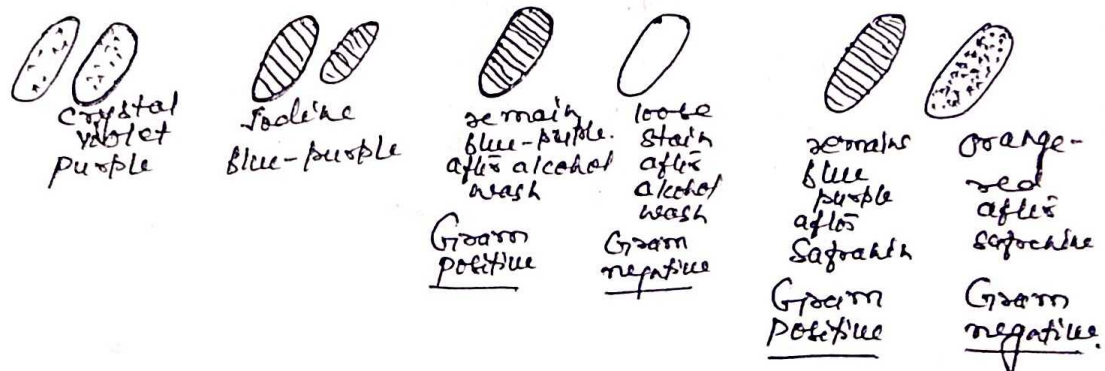 Crystal
violet
purple
Iodine
Blue-purple
remain
blue-purple.
after alcohol
wash
Gram
positive
loose
stain
after
alcohol
wash
Gram
negative
remains
blue
purple
after
Safranin
Gram
Positive
orange-
red
after
safranine
Gram
negative.